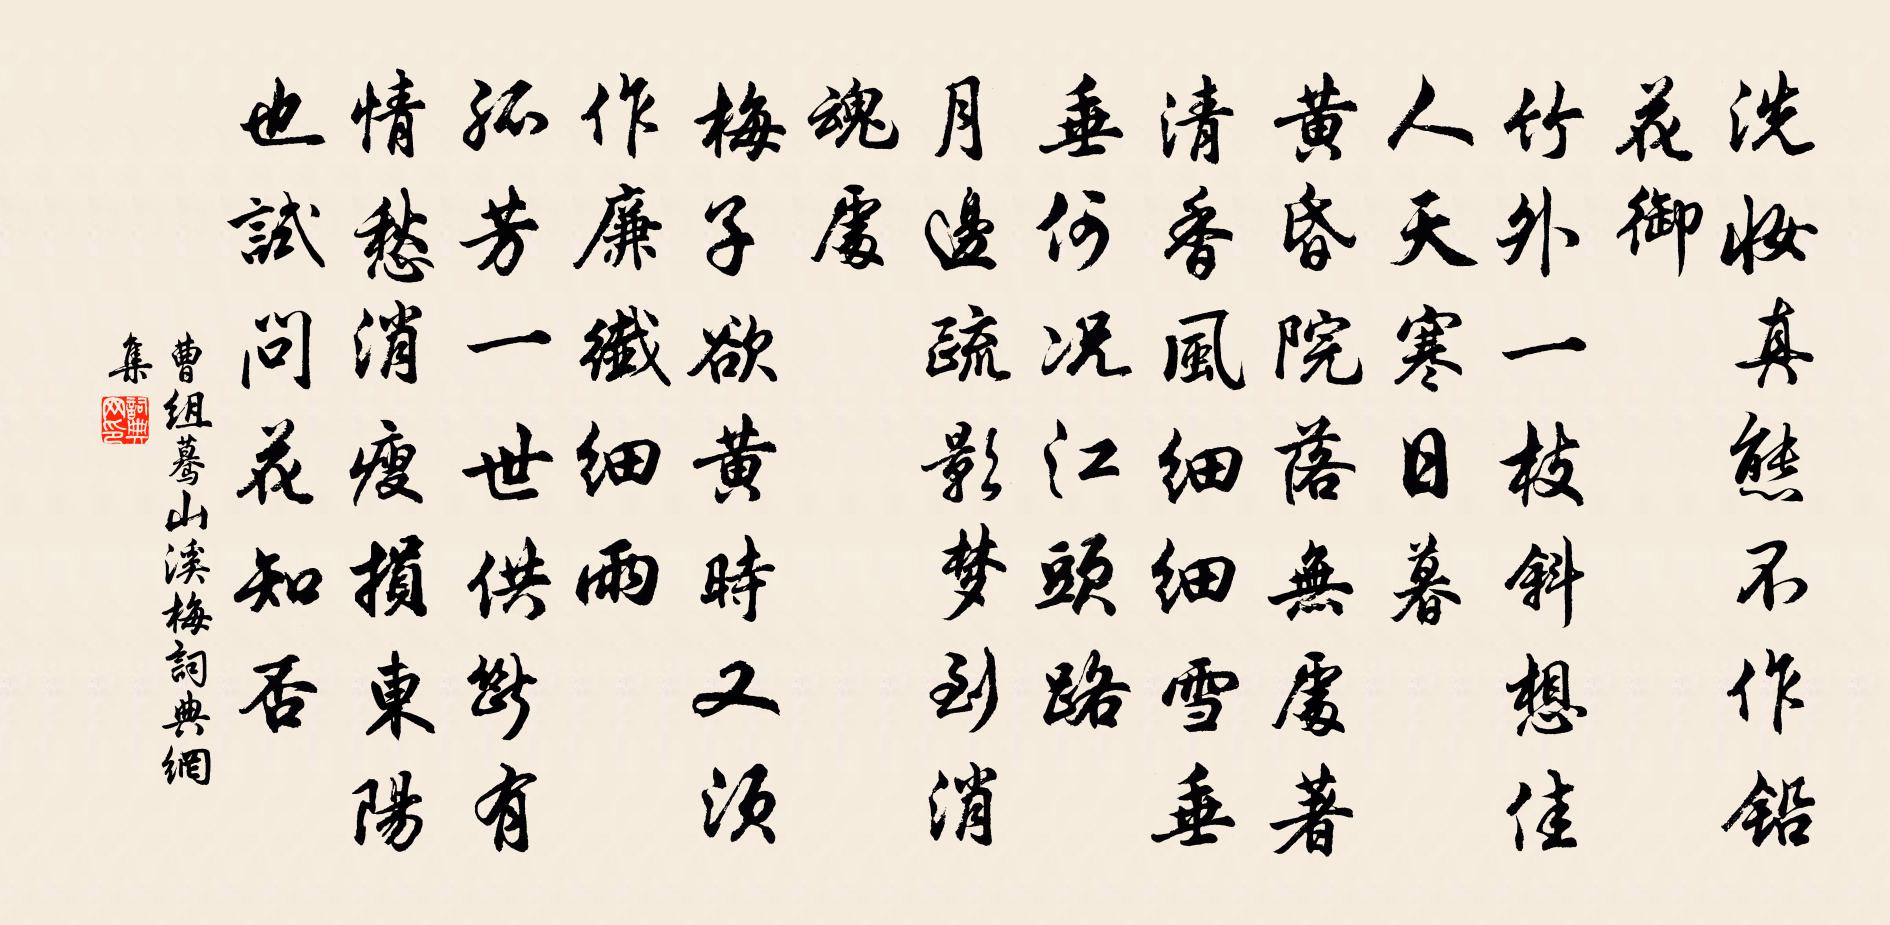 洗妝真態不作鉛
花御
竹外一枝斜想佳
人天寒日暮
黄昏院落無處著
清香風細細雪垂
垂何况江頭路
月邊疏影梦到消
魂處
梅子欲黄時又須
作廉纖細雨
孤芳一世供斷有
情愁消瘦損東陽
也試問花知否
曹組蓦山溪梅詞典網
集
詞典
网印